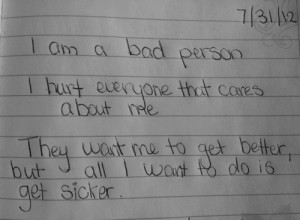 7/31/12
I am a bad person
I hurt everyone that cares
about me
They want me to get better,
but all I want to do is
get sicker.